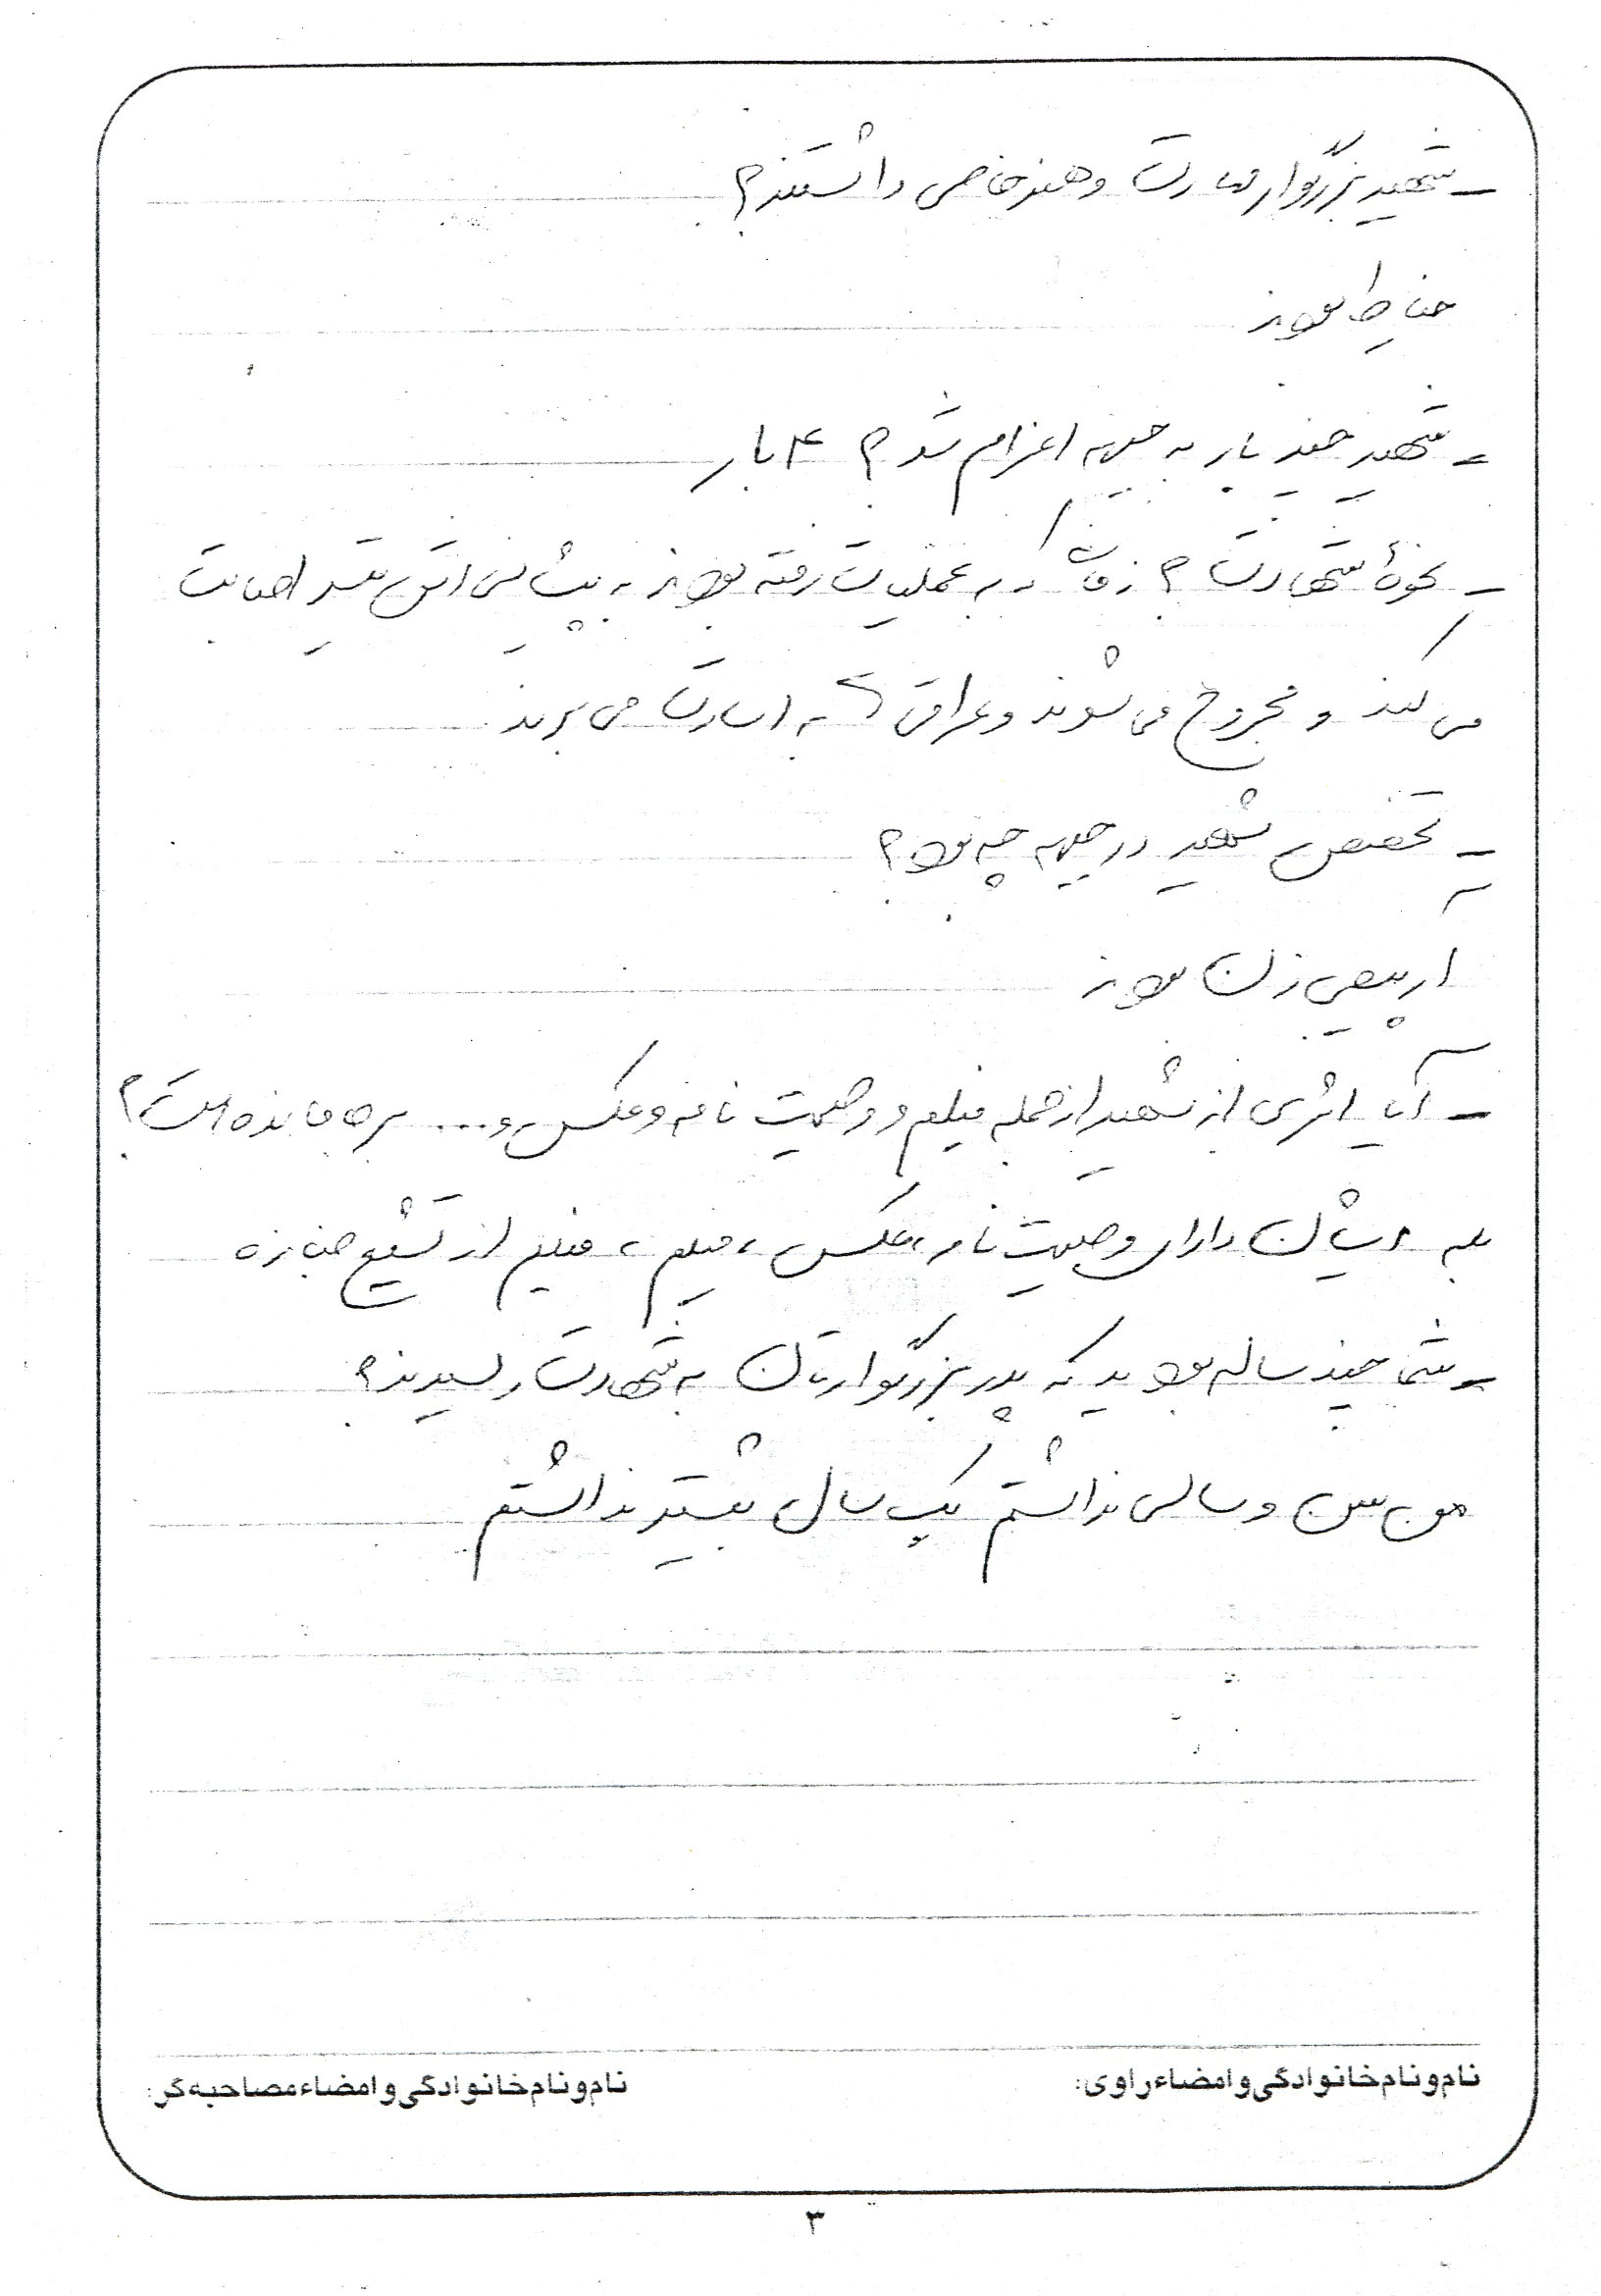 - شهید بزرگوار مهارت و هنر خاصی داشتند؟
خیاط بودند
- شهید چند بار به جبهه اعزام شد؟ ۴ بار
- نحوهٔ شهادت؟ زمانی که به عملیات رفته بودند به پیشانی اش تیر اصابت
می کند و مجروح می شوند و عراقی ها به اسارت می برند
- تخصص شهید در جبهه چه بود؟
آرپیچی زن بودند
- آیا اثری از شهید از جمله فیلم و وصیت نامه و عکس و ... برجا مانده است؟
بله ایشان دارای وصیت نامه، عکس، فیلم، فیلم از تشییع جنازه
- شما چند ساله بودید که پدر بزرگوارتان به شهادت رسیدند؟
من سن و سالی نداشتم یک سال بیشتر نداشتم
نام و نام خانوادگی و امضاء راوی:
نام و نام خانوادگی و امضاء مصاحبه گر:
۳